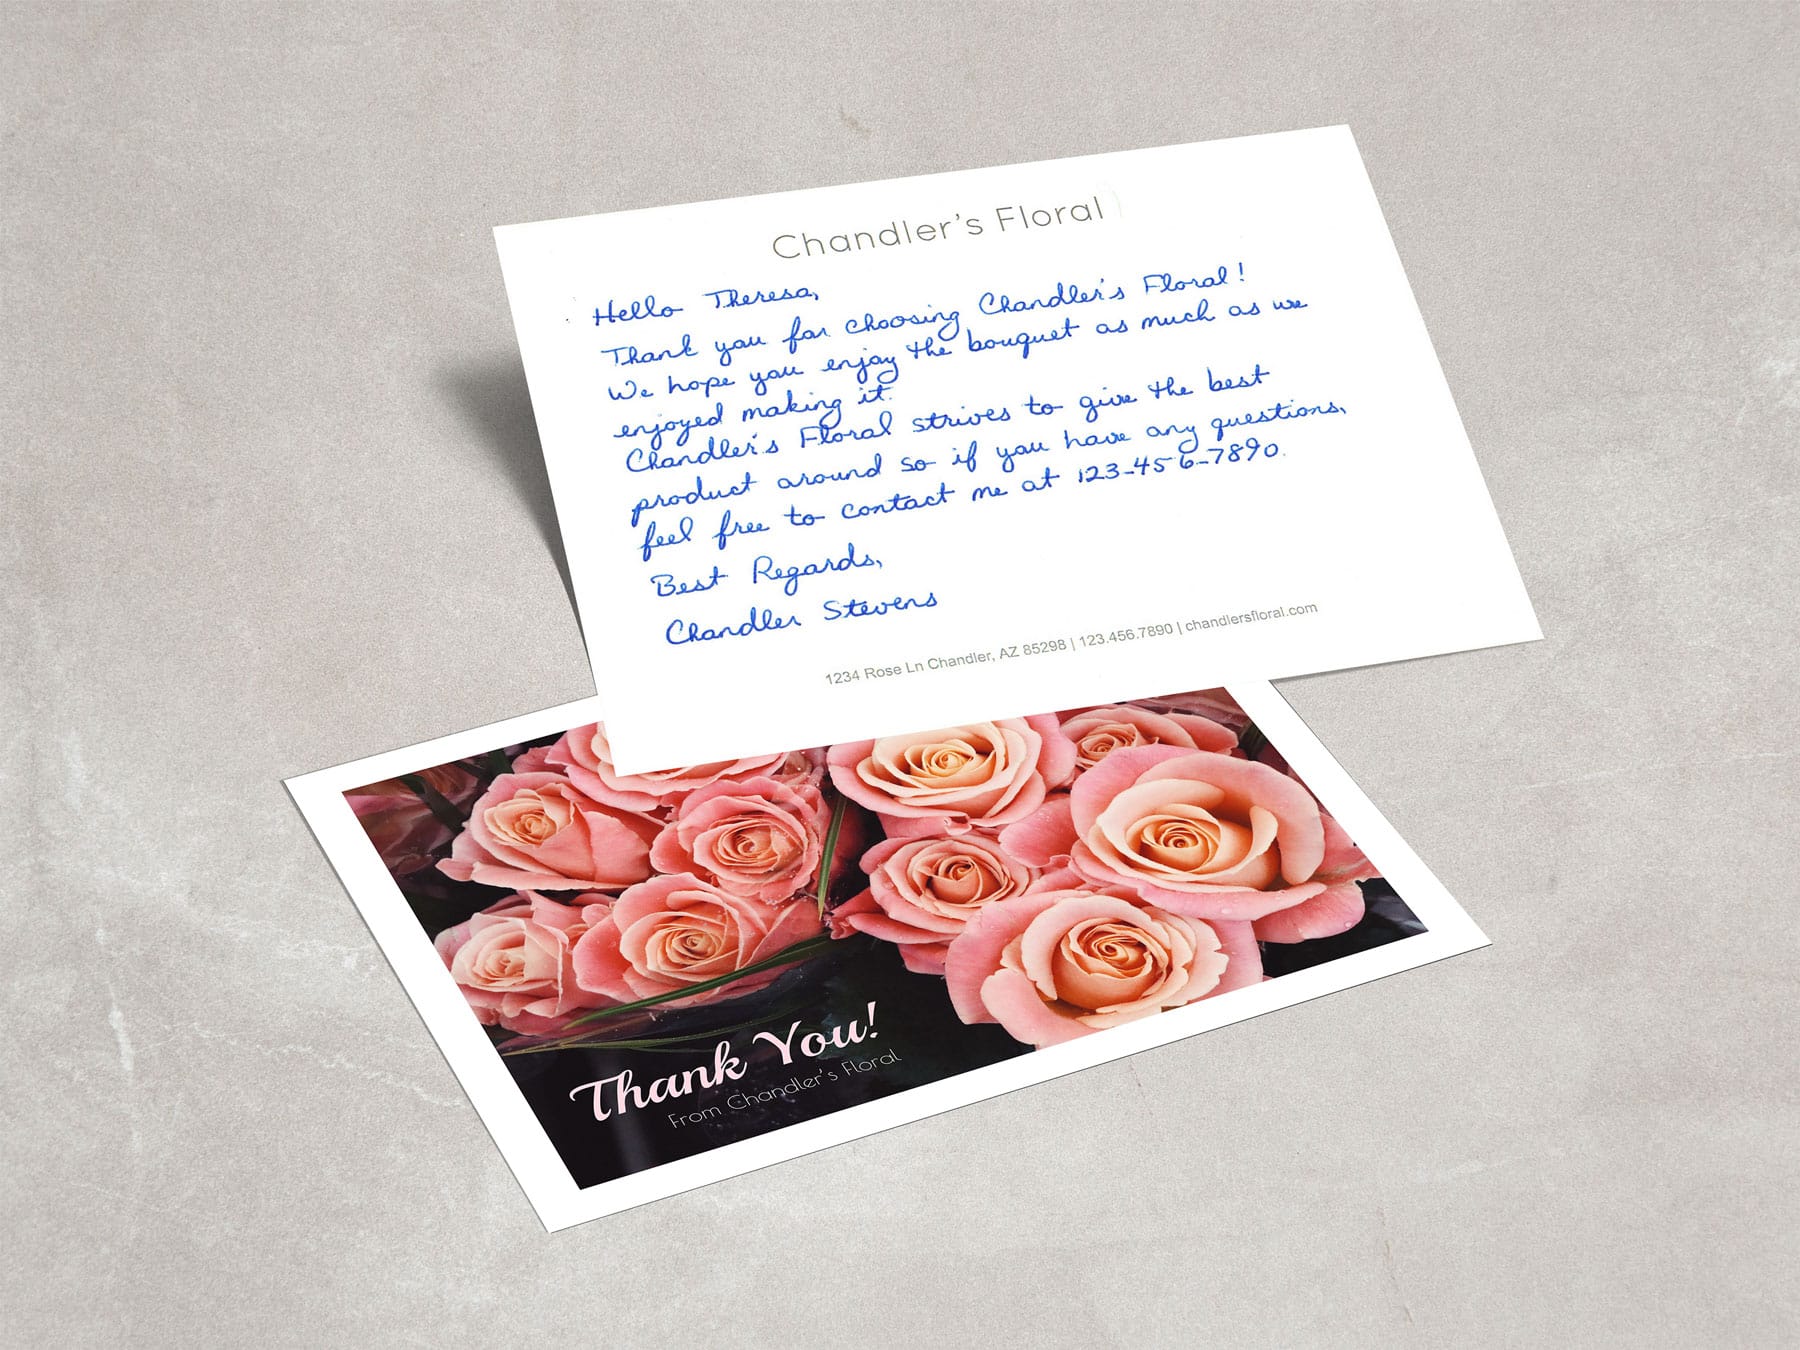 Chandler's Floral
Hello Theresa,
Thank you for choosing Chandler's Floral!
We hope you enjoy the bouquet as much as we
enjoyed making it.
Chandler's Floral strives to give the best
product around so if you have any questions,
feel free to contact me at 123-456-7890.
Best Regards,
Chandler Stevens
1234 Rose Ln Chandler, AZ 85298 | 123.456.7890 | chandlersfloral.com
Thank You!
From Chandler's Floral